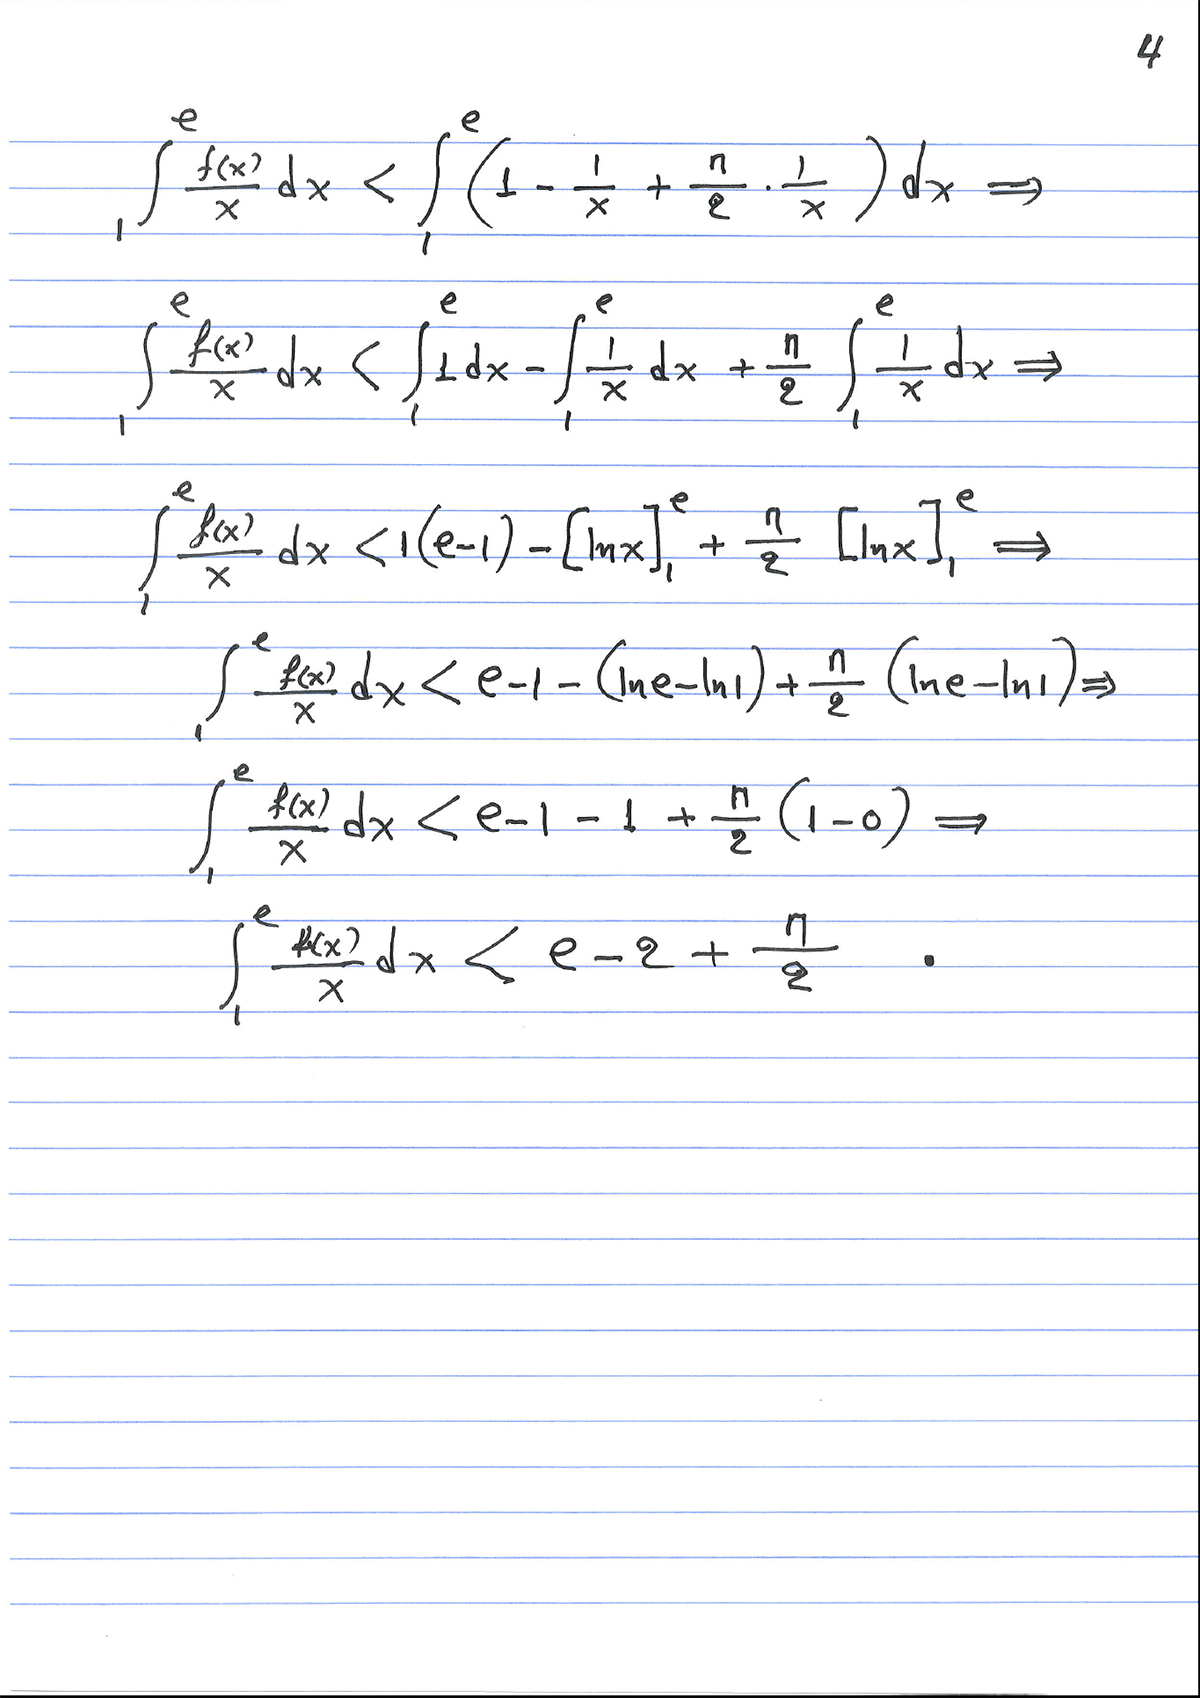 4
∫₁ᵉ f(x)/x dx < ∫₁ᵉ (1 - 1/x + π/2 · 1/x) dx ⇒
∫₁ᵉ f(x)/x dx < ∫₁ᵉ 1 dx - ∫₁ᵉ 1/x dx + π/2 ∫₁ᵉ 1/x dx ⇒
∫₁ᵉ f(x)/x dx < 1(e-1) - [lnx]₁ᵉ + π/2 [lnx]₁ᵉ ⇒
∫₁ᵉ f(x)/x dx < e-1 - (lne-ln1) + π/2 (lne-ln1) ⇒
∫₁ᵉ f(x)/x dx < e-1 - 1 + π/2 (1-0) ⇒
∫₁ᵉ f(x)/x dx < e-2 + π/2 .